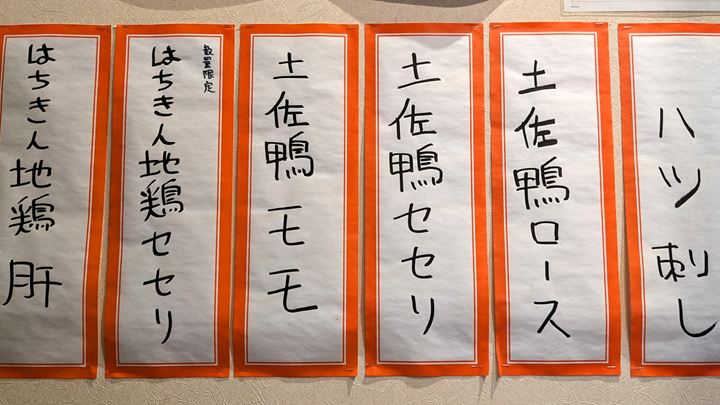 ハツ刺し
土佐鴨ロース
土佐鴨セセリ
土佐鴨モモ
数量限定
はちきん地鶏セセリ
はちきん地鶏 肝